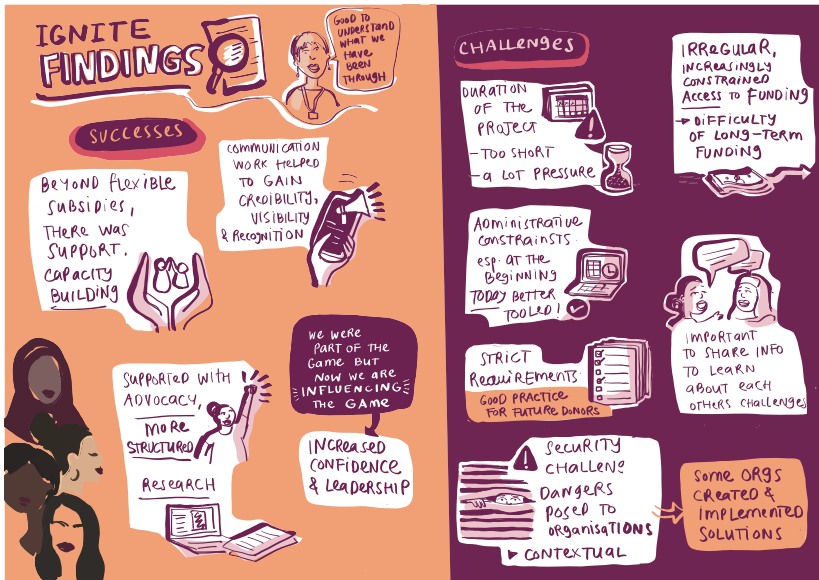 IGNITE
FINDINGS
GOOD TO
UNDERSTAND
WHAT WE
HAVE
BEEN
THROUGH
SUCCESSES
BEYOND flexible
SUBSIDIES,
THERE WAS
SUPPORT.
CAPACITY
BUILDING
COMMUNICATION
WORK HELPED
TO GAIN
CREDIBILITY,
VISIBILITY
& RECOGNITION
SUPPORTED WITH
ADVOCACY,
MORE
STRUCTURED
RESEARCH
WE WERE
PART OF THE
GAME BUT
NOW WE ARE
INFLUENCING
THE GAME
INCREASED
CONFIDENCE
& LEADERSHIP
CHALLENGES
DURATION
OF THE
PROJECT
- TOO SHORT
- A LOT PRESSURE
IRREGULAR,
INCREASINGLY
CONSTRAINED
ACCESS TO FUNDING
→ DIFFICULTY
OF LONG-TERM
FUNDING
ADMINISTRATIVE
CONSTRAINSTS.
esp. AT THE
BEGINNING
TODAY BETTER
TOOLED!
IMPORTANT
TO SHARE INFO
TO LEARN
ABOUT EACH
OTHERS CHALLENGES
STRICT
REQUIREMENTS
GOOD PRACTICE
FOR FUTURE DONORS
SECURITY
CHALLENG
DANGERS
POSED TO
ORGANISATIONS
▶ CONTEXTUAL
SOME ORGS
CREATED &
IMPLEMENTED
SOLUTIONS